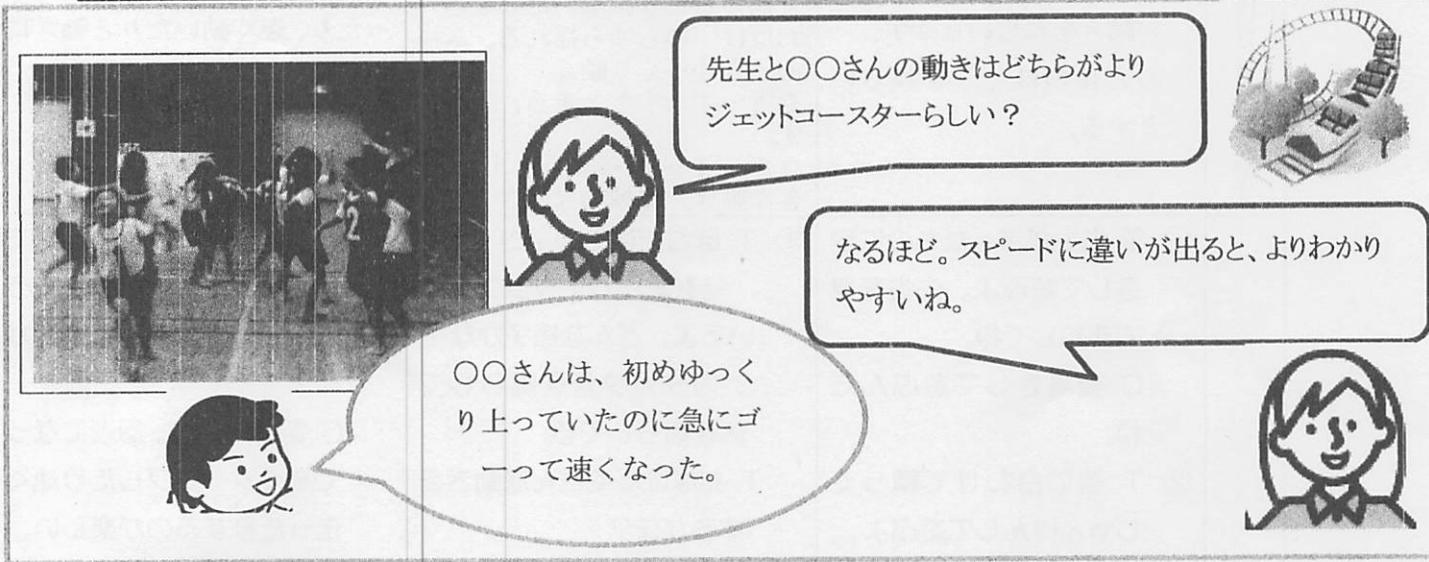 先生と〇〇さんの動きはどちらがより
ジェットコースターらしい？
なるほど。スピードに違いが出ると、よりわかり
やすいね。
〇〇さんは、初めゆっく
り上っていたのに急にゴ
ーって速くなった。
2